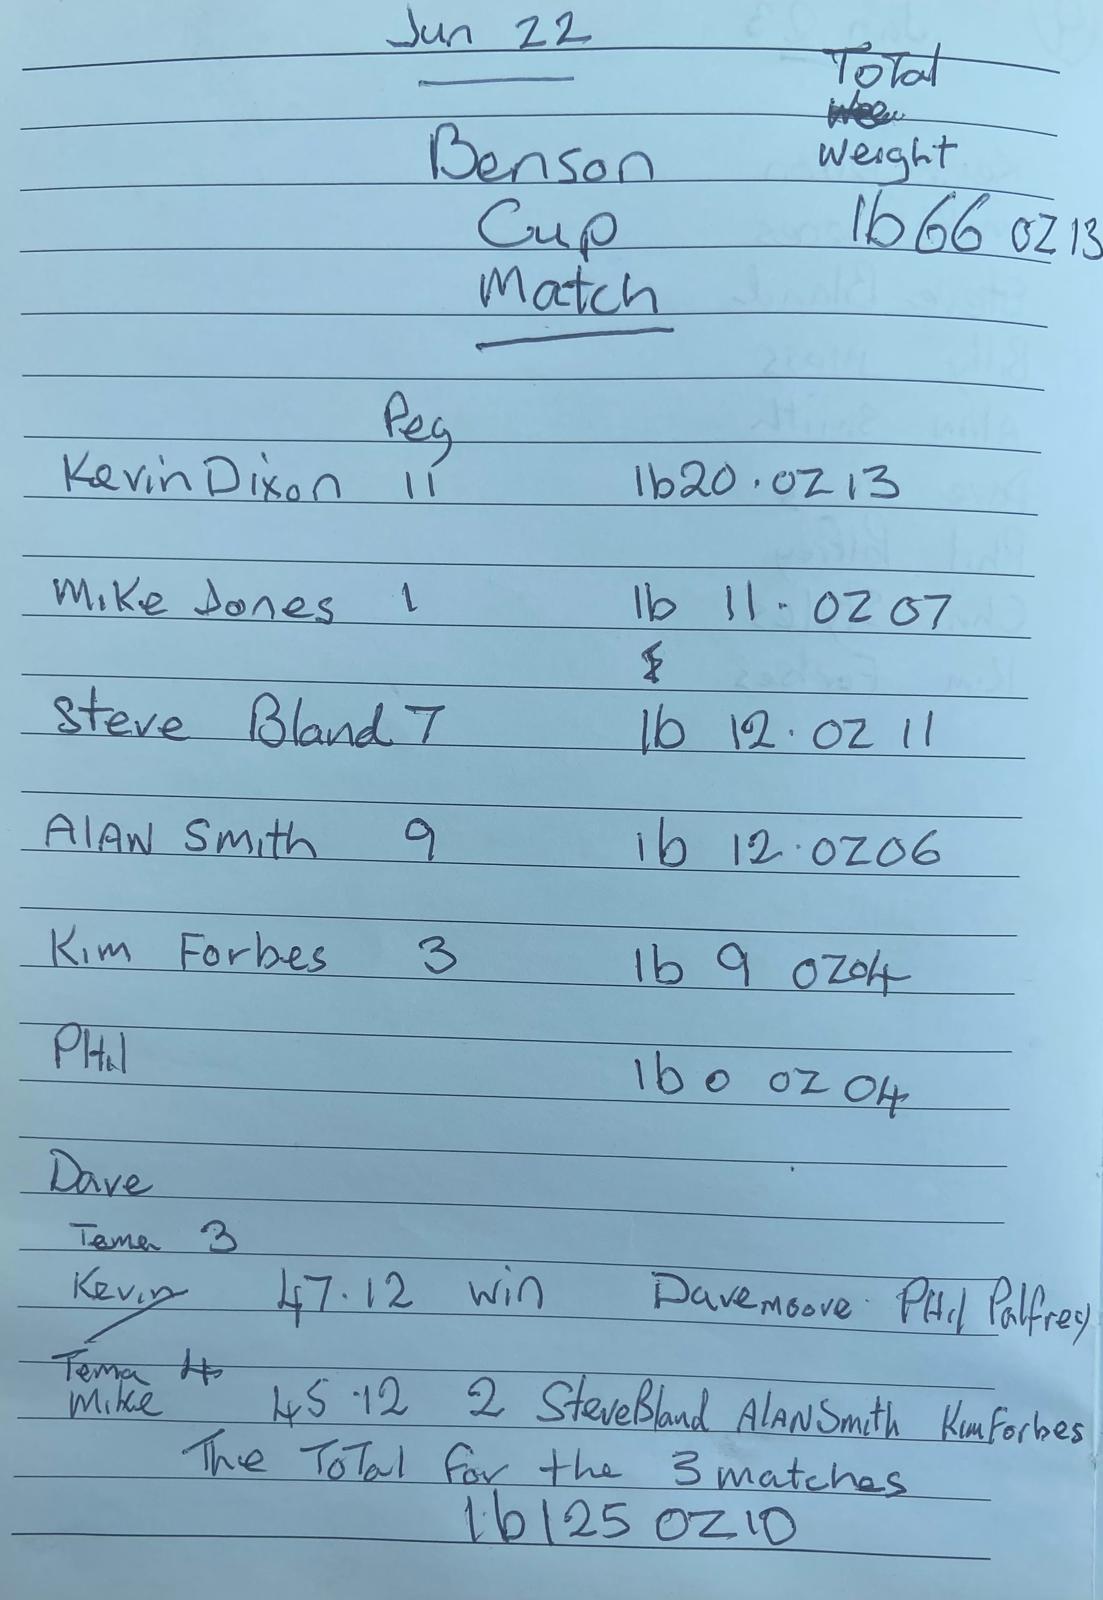 Jun 22
Total
Weight
Benson
Cup
lb 66 oz 13
Match
Peg
Kevin Dixon 11 lb 20 . oz 13
Mike Jones 1 lb 11 . oz 07
Steve Bland 7 lb 12 . oz 11
Alan Smith 9 lb 12 . oz 06
Kim Forbes 3 lb 9 oz 04
Phil lb 0 oz 04
Dave
Tema 3
Kevin 47.12 win Dave moore Phil Palfrey
Tema 4
Mike 45.12 2 Steve Bland Alan Smith Kim Forbes
The Total for the 3 matches
lb 125 oz 10